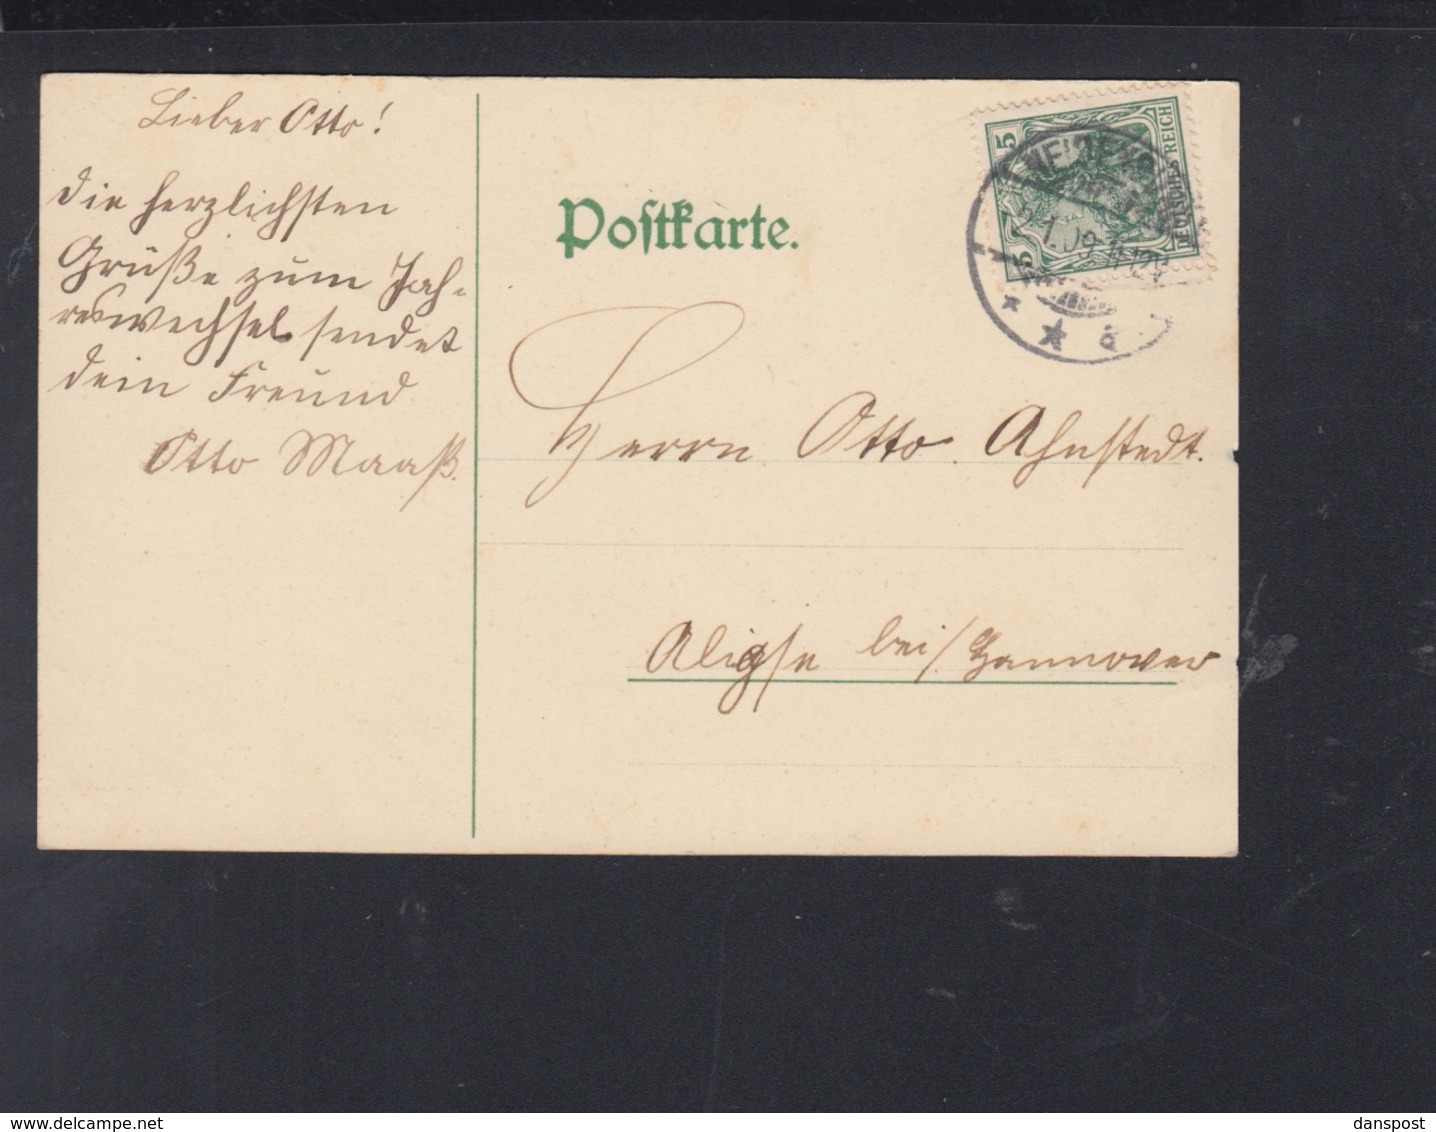 Lieber Otto!
die herzlichsten
Grüße zum Jah-
reswechsel sendet
dein Freund
Otto Maaß.
Postkarte.
5
5
DEUTSCHES REICH
2.1.09
Herrn Otto Ahnstedt.
Aligse bei/Hannover
www.delcampe.net
danspost